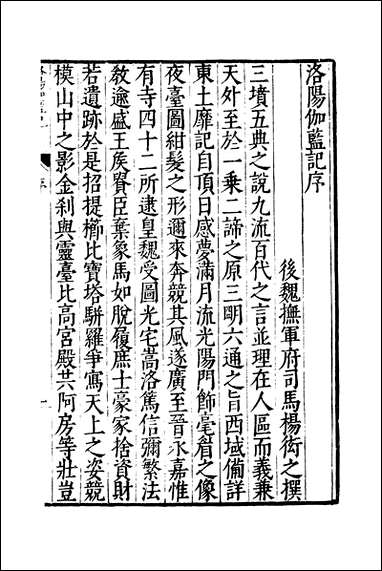 洛陽伽藍記序
後魏撫軍府司馬楊衒之撰
三墳五典之說九流百代之言並理在人區而義兼
天外至於一乗二諦之原三明六通之旨西域備詳
東土靡記自頂日感夢滿月流光陽門飾毫眉之像
夜臺圖紺髮之形邇來奔競其風遂廣至晉永嘉惟
有寺四十二所逮皇魏受圖光宅嵩洛篤信彌繁法
教逾盛王侯貴臣棄象馬如脫屣庶士豪家捨資財
若遺跡於是招提櫛比寶塔駢羅爭寫天上之姿競
模山中之影金刹與靈臺比高宮殿共阿房等壯豈